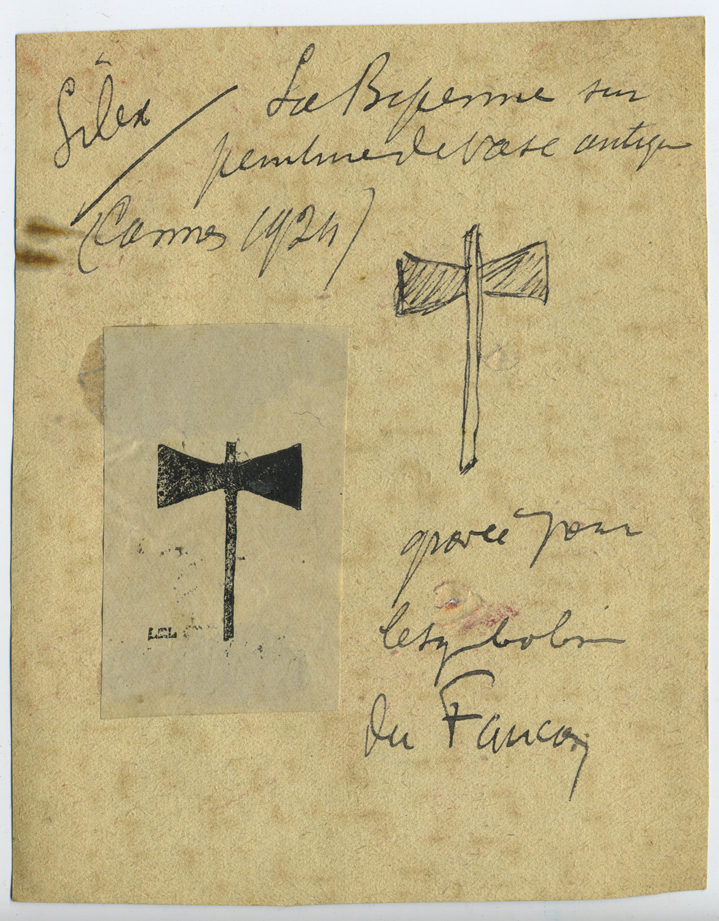 Silex
La Bipenne sur
peinture de vase antique
(Cannes 1924)
gravée pour
le symbolisme
du Faucon